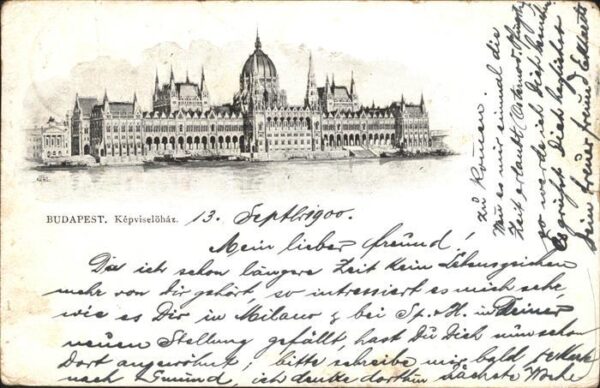 BUDAPEST. Képviselöház.
13. Sept 1900.
Mein lieber Freund!
Da ich schon längere Zeit kein Lebenszeichen
mehr von Dir gehört, so intressiert es mich sehr,
wie es Dir in Milano & bei Sp. & H. in Deiner
neuen Stellung gefällt, hast Du Dich nun schon
Dort angewöhnt; bitte schreibe mir bald
nach Gmünd, ich denke dorthin nächste Woche
zu kommen.
Wenn es mir einmal die
Zeit erlaubt
so werde ich Dich
Es grüßt Dich
Dein treuer Freund